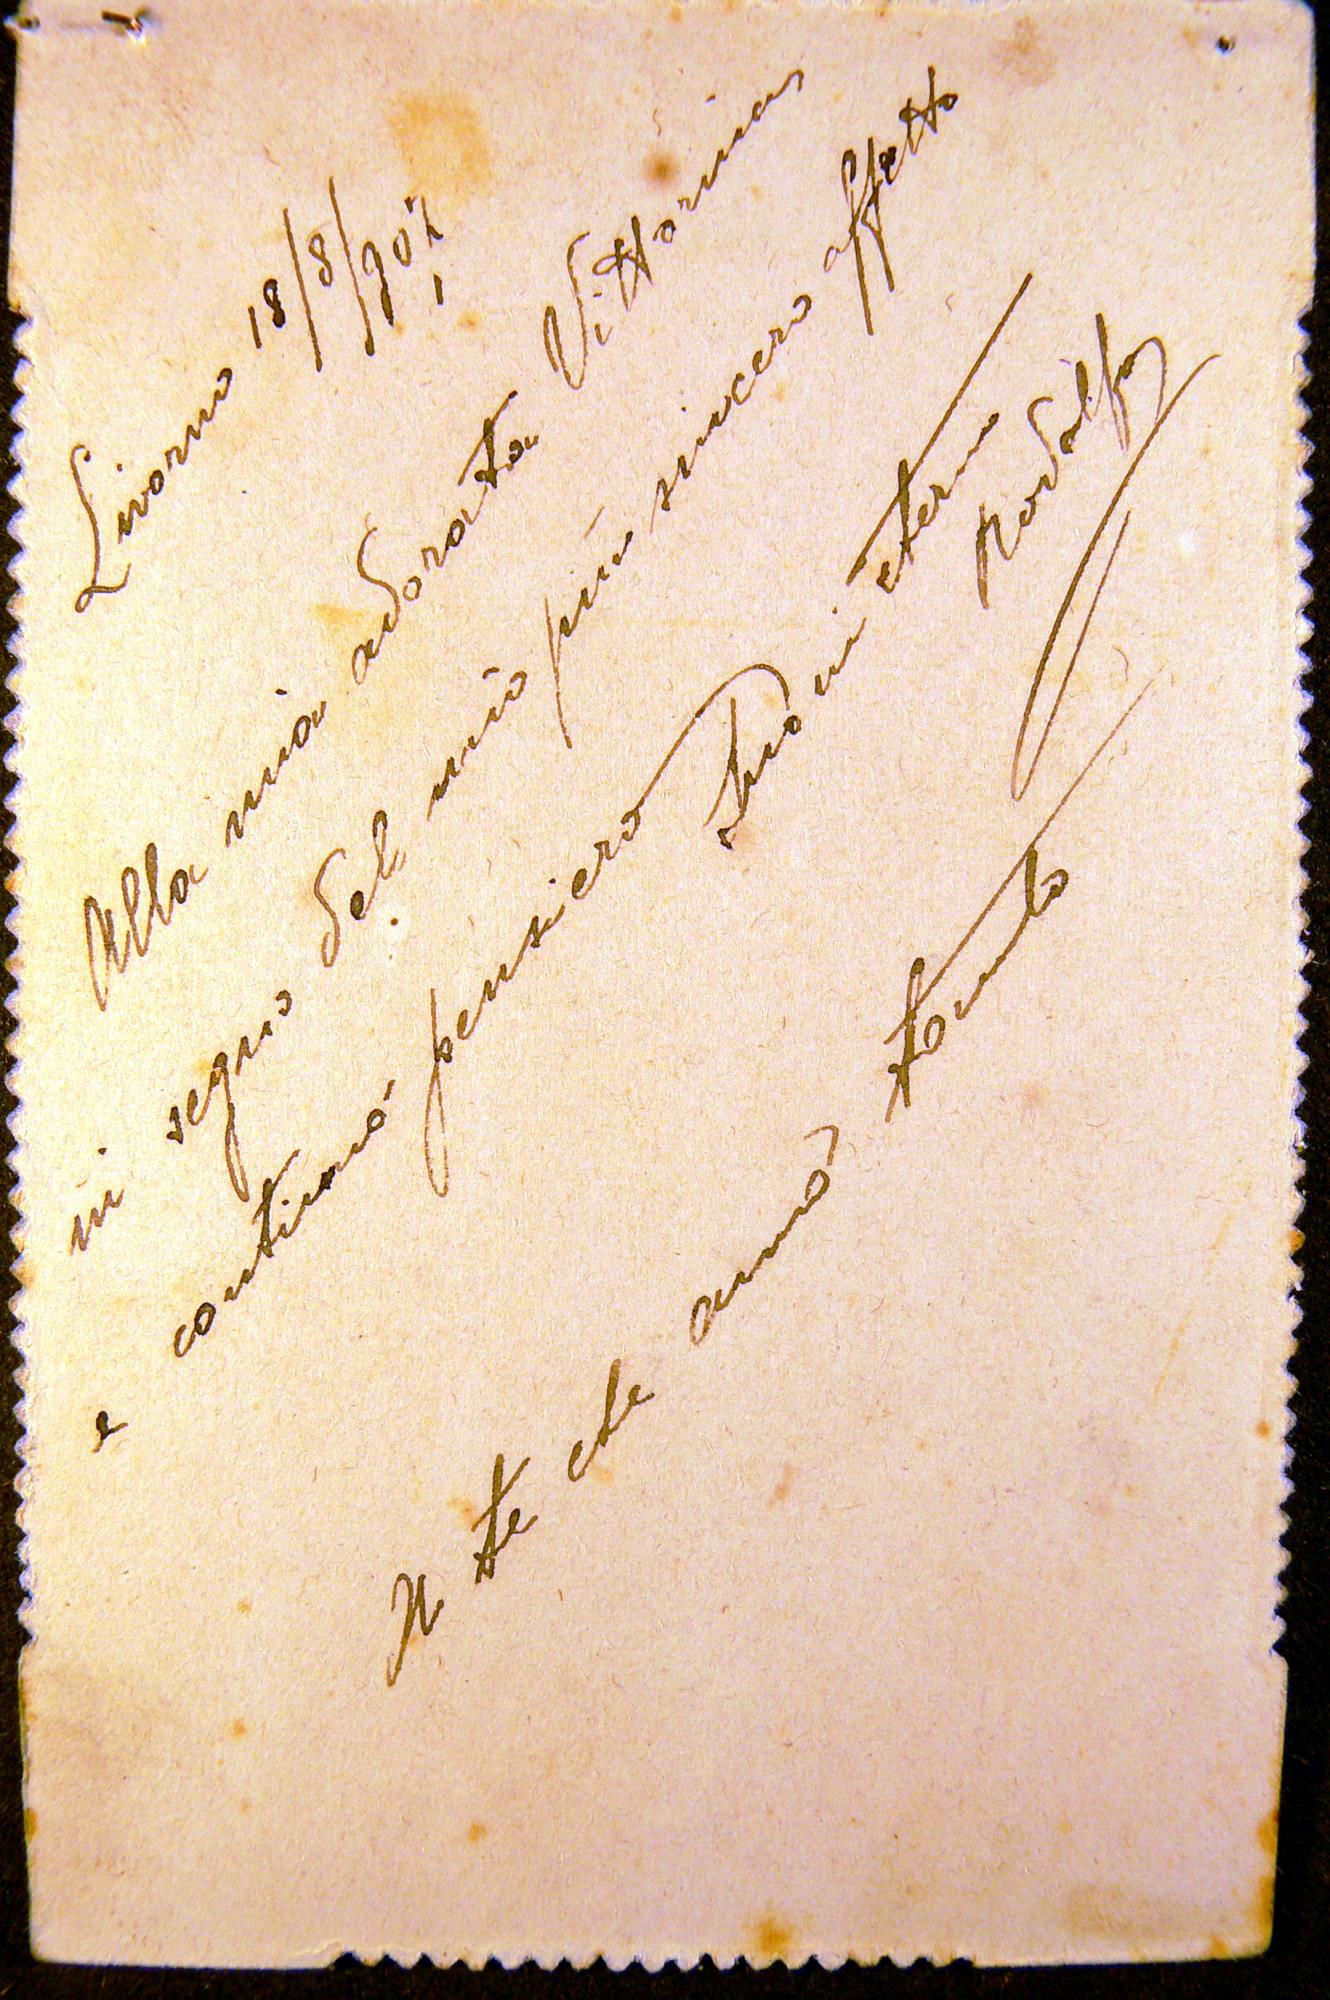 Livorno 18/8/907
Alla mia adorata Vittorina
in segno del mio più sincero affetto
e continuó pensiero
tuo in eterno
Rodolfo
A te che amo' tanto